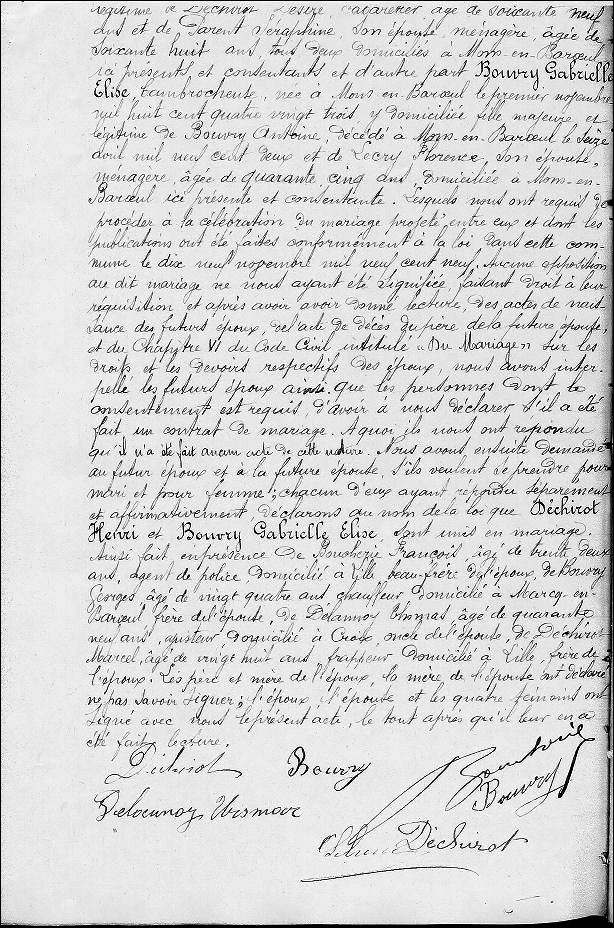 légitime de Déchirot Désiré, âgé de soixante neuf
ans et de Parent Séraphine, son épouse, ménagère, âgée de
soixante huit ans, tous deux domiciliés à Mons-en-Barœul
ici présents et consentants et d'autre part Bouvry Gabrielle
Elise, née à Mons-en-Barœul le premier novembre
mil huit cent quatre vingt trois, y domiciliée fille majeure et
légitime de Bouvry Antoine, décédé à Mons-en-Barœul le seize
avril mil neuf cent deux et de Lecry Florence, son épouse,
ménagère, âgée de quarante cinq ans domiciliée à Mons-en-
Barœul ici présente et consentante. Lesquels nous ont requis de
procéder à la célébration du mariage projeté entre eux et dont les
publications ont été faites conformément à la loi dans cette com-
mune le dix neuf novembre mil neuf cent neuf. Aucune opposition
au dit mariage ne nous ayant été signifiée, faisant droit à leur
réquisition et après avoir avoir donné lecture, des actes de nais-
sance des futurs époux, de l'acte de décès du père de la future épouse
et du Chapitre VI du Code Civil intitulé "Du Mariage" sur les
droits et les devoirs respectifs des époux, nous avons inter-
pellé les futurs époux ainsi que les personnes dont le
consentement est requis, d'avoir à nous déclarer s'il a été
fait un contrat de mariage. A quoi ils nous ont répondu
qu'il n'a été fait aucun acte de cette nature. Nous avons ensuite demandé
au futur époux et à la future épouse s'ils veulent se prendre pour
mari et pour femme; chacun d'eux ayant répondu séparément
et affirmativement, déclarons au nom de la loi que Déchirot
Henri et Bouvry Gabrielle Elise, sont unis en mariage.
Ainsi fait en présence de Boucherie François, âgé de trente deux
ans, agent de police, domicilié à Lille beau-frère de l'époux, de Bouvry
Georges âgé de vingt quatre ans chauffeur domicilié à Marcq-en-
Barœul frère de l'épouse, de Delannoy âgé de quarante
neuf ans, ajusteur domicilié à Croix, oncle de l'épouse, de Déchirot
Marcel, âgé de vingt huit ans, frappeur domicilié à Lille, frère de
l'époux. Les père et mère de l'époux, la mère de l'épouse ont déclaré
ne pas savoir signer; l'époux, l'épouse et les quatre témoins ont
signé avec nous le présent acte, le tout après qu'il leur en a
été fait lecture.
Déchirot Bouvry
Bouvry
Delannoy
Déchirot